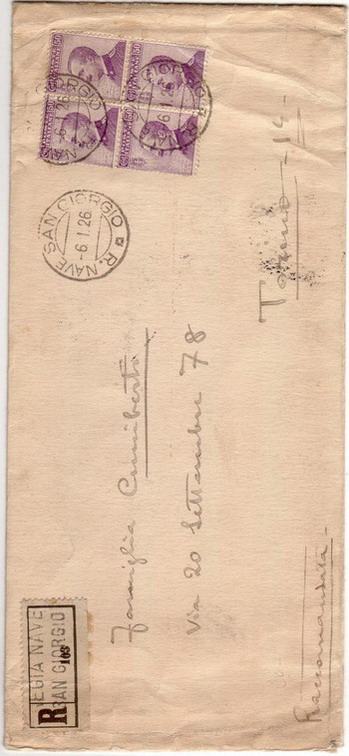 R. NAVE SAN GIORGIO
-6.1.26
Famiglia Cuniberti
Via 20 Settembre 78
Torino
Raccomandata -
R
EGIA NAVE
SAN GIORGIO